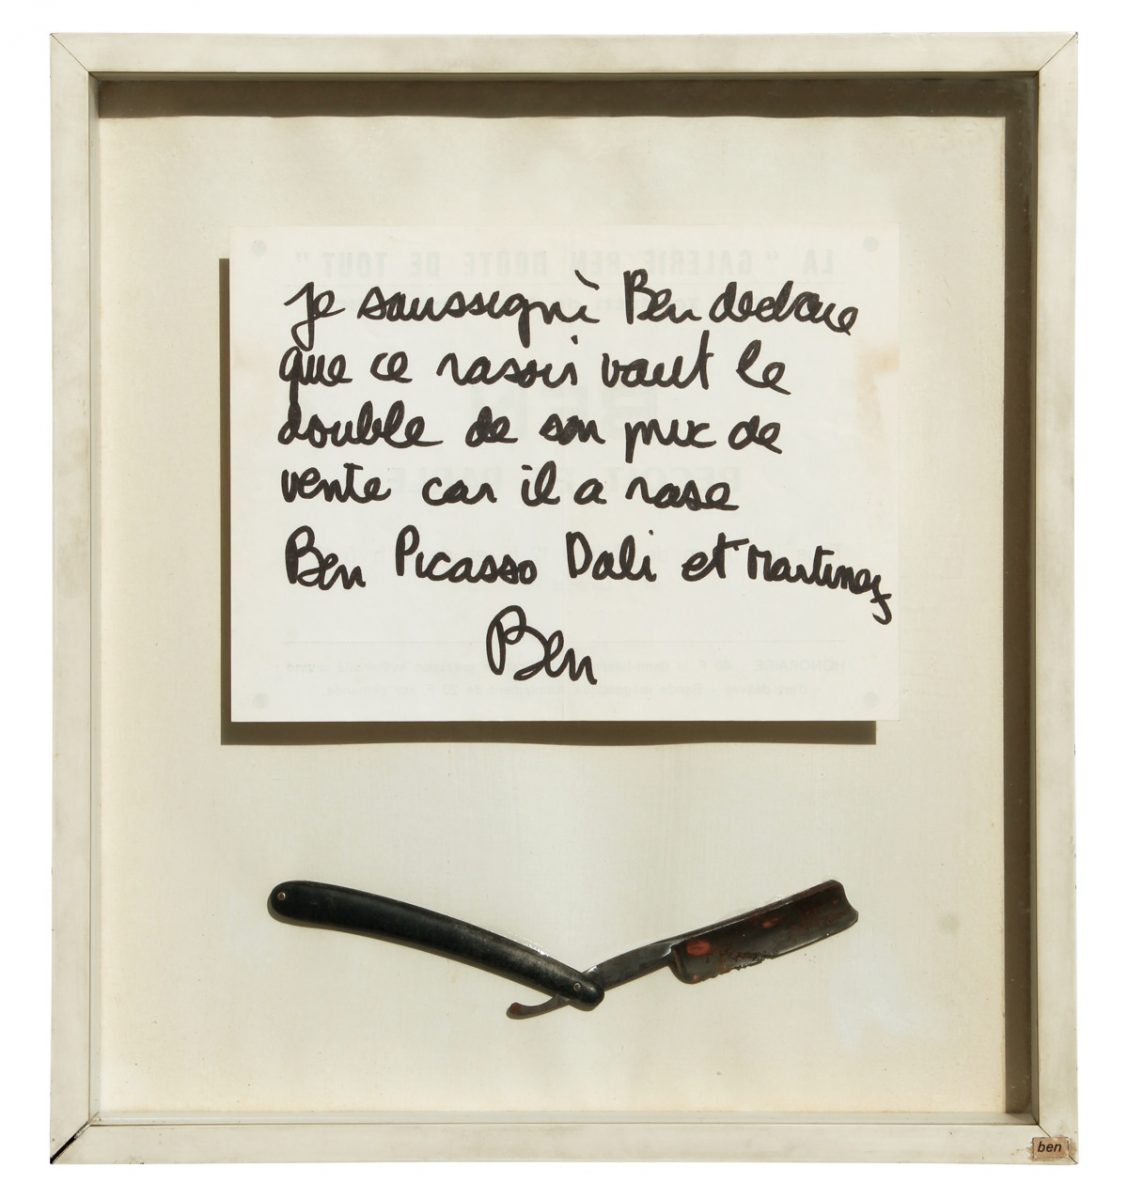 LA "GALERIE BEN DOUTE DE TOUT"
je soussignè Ben declare
que ce rasoir vaut le
double de son prix de
vente car il a rase
Ben Picasso Dali et Martinez
Ben
HONORAIRE
ben